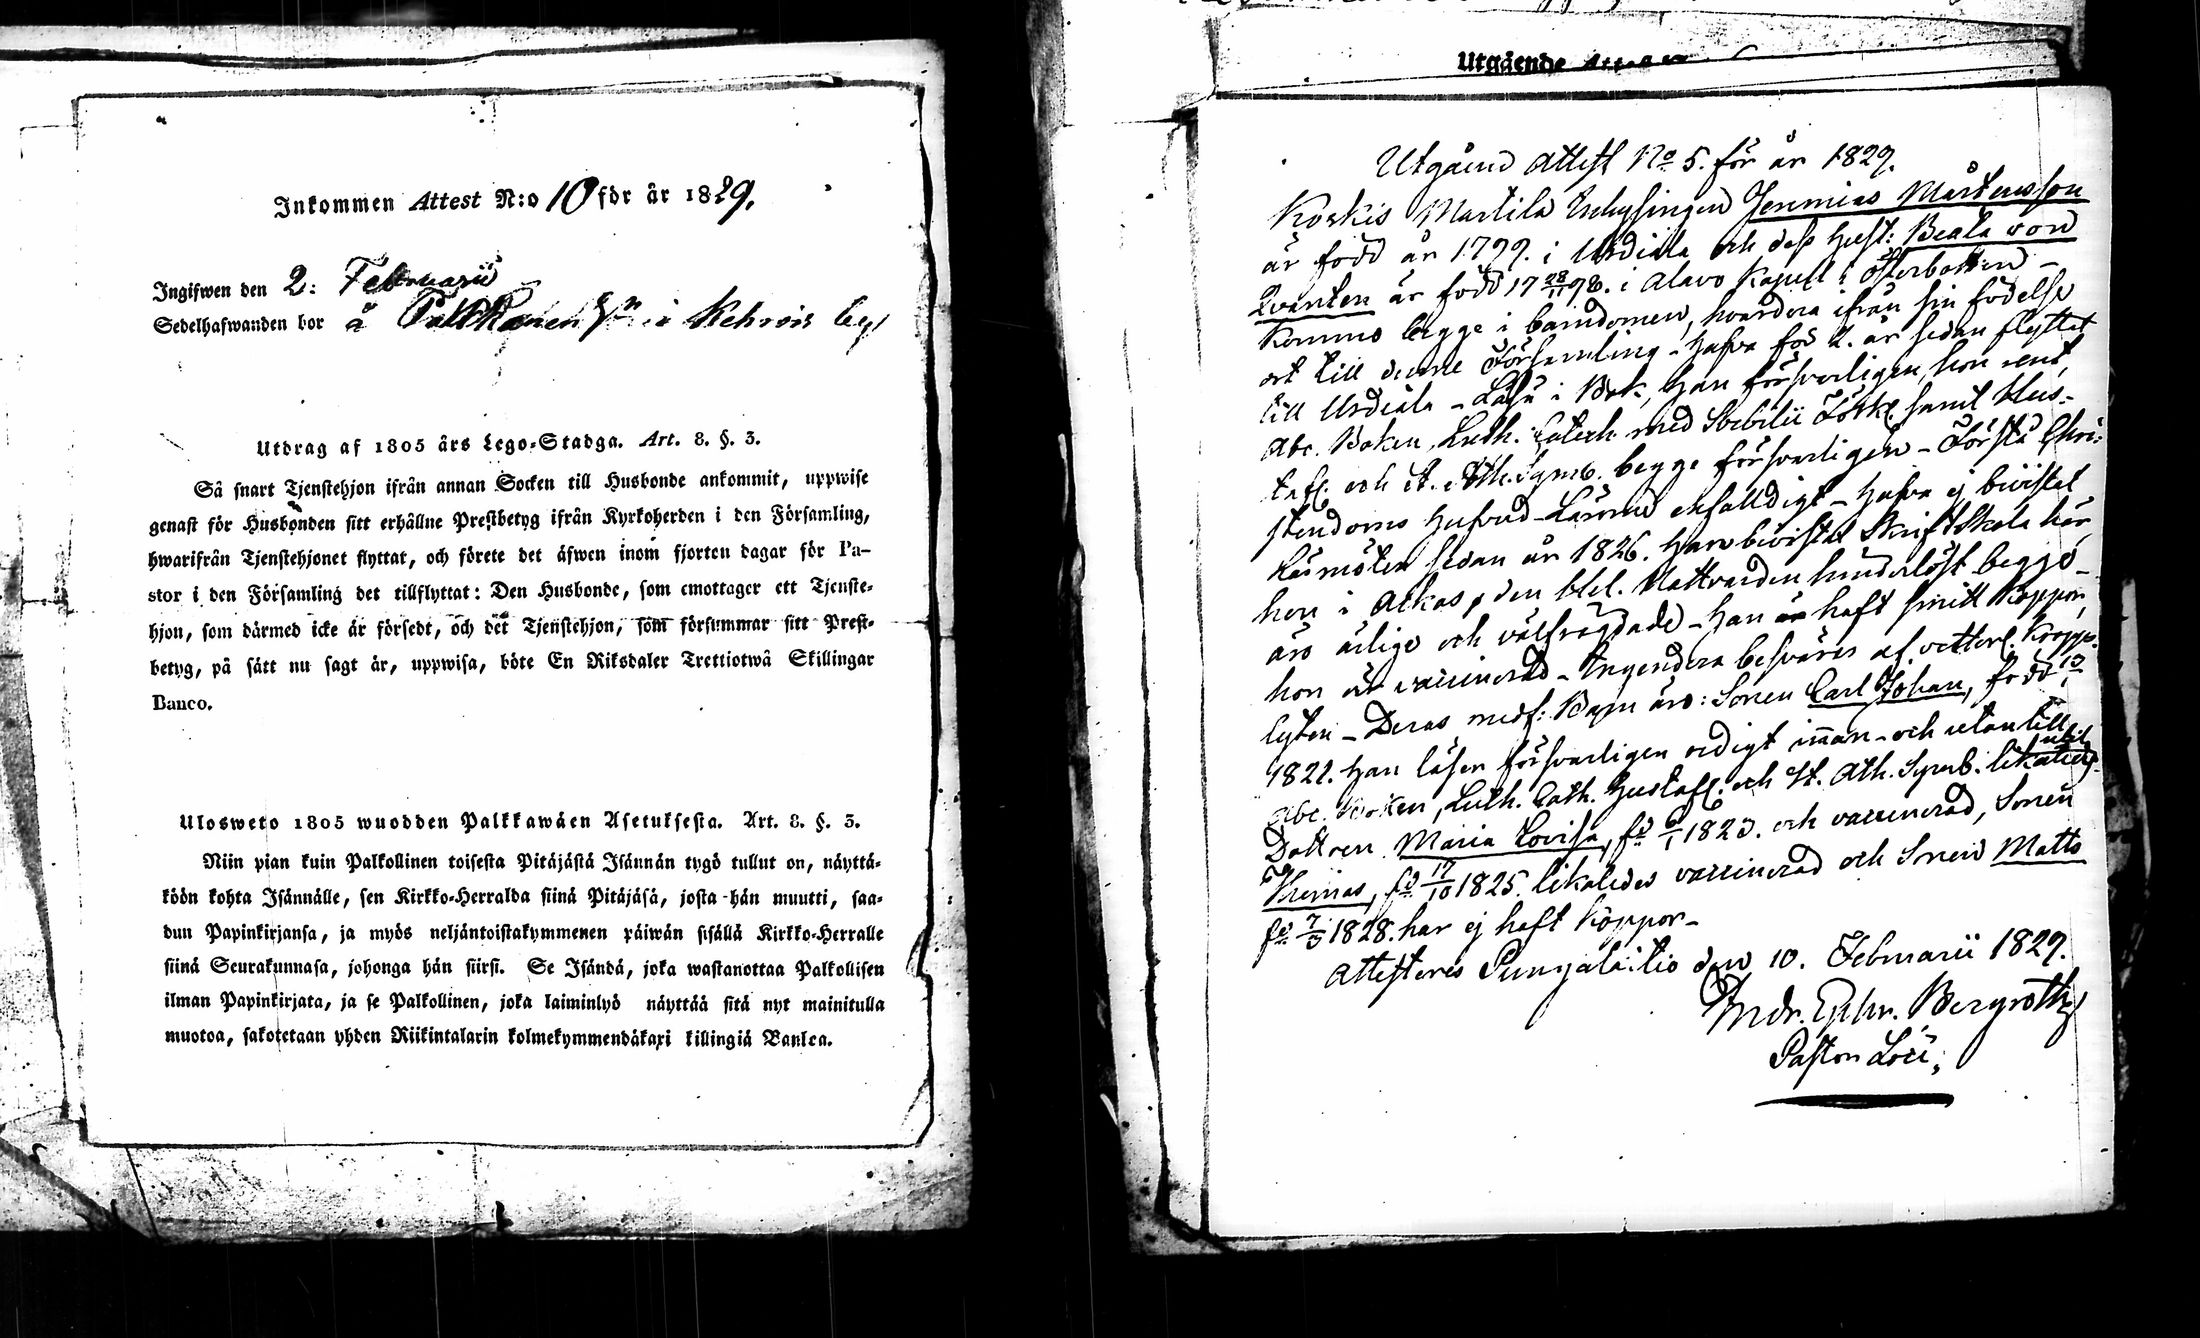 Inkommen Attest N:o 10 för år 1829.
Ingifwen den 2: Februarii
Sedelhafwanden bor å i Kehrois by
Utdrag af 1805 års Lego-Stadga. Art. 8. §. 3.
Så snart Tjenstehjon ifrån annan Socken till Husbonde ankommit, uppwise
genast för Husbonden sitt erhållne Prestbetyg ifrån Kyrkoherden i den Församling,
hwarifrån Tjenstehjonet flyttat, och förete det äfwen inom fjorton dagar för Pa-
stor i den Församling det tillflyttat: Den Husbonde, som emottager ett Tjenste-
hjon, som därmed icke är försedt, och det Tjenstehjon, som försummar sitt Prest-
betyg, på sätt nu sagt är, uppwisa, böte En Riksdaler Trettiotwå Skillingar
Banco.
Ulosweto 1805 wuodden Palkkawäen Asetuksesta. Art. 8. §. 3.
Niin pian kuin Palkollinen toisesta Pitäjästä Isännän tygö tullut on, näyttä-
köön kohta Isännälle, sen Kirkko-Herralda siinä Pitäjäsä, josta hän muutti, saa-
dun Papinkirjansa, ja myös neljäntoistakymmenen päiwän sisällä Kirkko-Herralle
siinä Seurakunnasa, johonga hän siirsi. Se Isändä, joka wastanottaa Palkollisen
ilman Papinkirjata, ja se Palkollinen, joka laiminlyö näyttää sitä nyt mainitulla
muotoa, sakotetaan yhden Riikintalarin kolmekymmendäkaxi killingiä Bankoa.
Utgående
Utgåend attest No 5. för år 1829.
Koskis Martila Inhysingen Jeremias Mårtensson
är född år 1799. i Urdiala och dess Hust: Beata von
Qvanten är född 17 28/11 98. i Alavo Kapell i Österbotten -
Komne begge i barndomen, hvardera ifrån sin födelse
ort till denne Församling - Hafva för 2. år sedan flyttat
till Urdiala - Läsa i Bok, han försvarligen, hon rent,
Abc. Boken, Luth. Catech. med Svebilii Förkl. samt Hus-
tafl. och St. Ath. Symb. begge försvarligen - Första Chri-
stendoms Hufvud-Lärorne enfalldigt - Hafva ej bivistat
Läsmöten sedan år 1826. Han bivistat Skriftskola här,
hon i Akkas, den Hel. Nattvarden hinderlöst begge -
äro ärlige och välfrägdade - Han haft smitt Koppor,
hon är vaccinerad - Ingendera besväras af vetterl. Kropps-
lyten - Deras medf: Barn äro: Sonen Carl Johan, född
1821. Han läser försvarligen ordigt innan- och utantill
Abc. Boken, Luth. Cath. Hustafl. och St. Ath. Symb. likaledes
Dottren Maria Lovisa, fd 6/1 1823. och vaccinerad, Sonen
fd 17/10 1825. likaledes vaccinerad och Sonen Matts
fd 7/3 1828. har ej haft Koppor -
Attesteres Pungalaitio den 10. Februarii 1829.
Andr. Ephr. Bergroth
Pastor Loci;